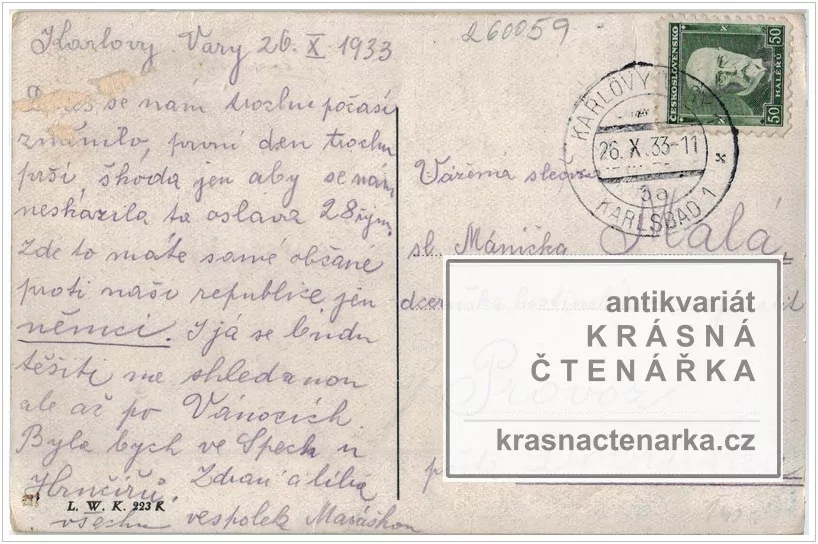 Karlovy Vary 26. X. 1933
260059
ČESKOSLOVENSKO
50 HALÉŘŮ 50
KARLOVY VARY
26. X. 33-11
3a
KARLSBAD 1
Dnes se nám trochu počasí
změnilo, první den trochu
prší, škoda jen aby se nám
neskázila ta oslava 28 říj.
Zde to máte samé občané
proti naší republice jen
němci. I já se budu
těšiti na shledanou
ale až po Vánocích.
Byla bych ve Speck u
Hrnčířů. Zdraví a líbá
všechny vespolek
L. W. K. 223 K
Vážená slečna
sl. Mánička Malá,
dceruška
Provoz
antikvariát
KRÁSNÁ
ČTENÁŘKA
krasnactenarka.cz